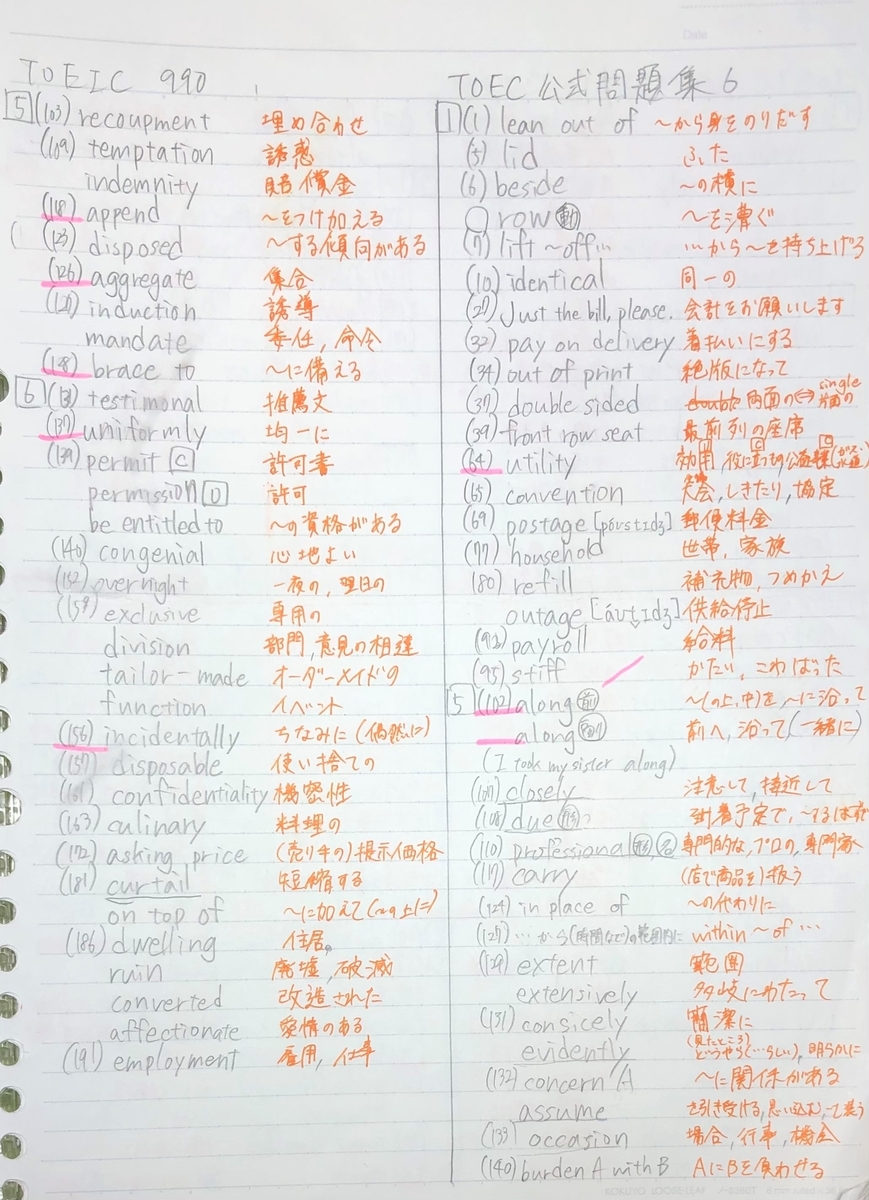 Date
TOEIC 990
5 (103) recoupment 埋め合わせ
(109) temptation 誘惑
indemnity 賠償金
(118) append ～をつけ加える
(123) disposed ～する傾向がある
(126) aggregate 集合
induction 誘導
mandate 委任, 命令
(128) brace to ～に備える
6 testimonal 推薦文
(137) uniformly 均一に
(139) permit C 許可書
permission U 許可
be entitled to ～の資格がある
(140) congenial 心地よい
(152) overnight 一夜の, 翌日の
(154) exclusive 専用の
division 部門, 意見の相違
tailor-made オーダーメイドの
function イベント
(156) incidentally ちなみに (偶然に)
(157) disposable 使い捨ての
(161) confidentiality 機密性
(163) culinary 料理の
(172) asking price (売り手の)提示価格
(181) curtail 短縮する
on top of ～に加えて(～の上に)
(186) dwelling 住居。
ruin 廃墟, 破滅
converted 改造された
affectionate 愛情のある
(191) employment 雇用, 仕事
TOEC 公式問題集 6
1 (1) lean out of ～から身をのりだす
(5) lid ふた
(6) beside ～の横に
row 動 ～を漕ぐ
(7) lift ～ off … …から～を持ち上げる
(10) identical 同一の
(27) Just the bill, please. 会計をお願いします
(32) pay on delivery 着払いにする
(34) out of print 絶版になって
(37) double sided 両面の ⇔ single 片面の
(39) front row seat 最前列の座席
(64) utility 効用, 役に立つもの
(65) convention 大会, しきたり, 協定
(69) postage [póustɪdʒ] 郵便料金
(77) household 世帯, 家族
(80) refill 補充物, つめかえ
outage [áutɪdʒ] 供給停止
(92) payroll 給料
(95) stiff かたい, こわばった
5 (102) along 前 ～(の上, 中)を, ～に沿って
along 副 前へ, 沿って(一緒に)
(I took my sister along)
(107) closely 注意して, 接近して
(108) due 形 到着予定で, ～するはずで
(110) professional 形, 名 専門的な, プロの, 専門家
(117) carry (店で商品を)扱う
(124) in place of ～の代わりに
(127) …から(時間など)の範囲内に within ～ of …
(129) extent 範囲
extensively 多岐にわたって
(131) consicely 簡潔に
evidently (見たところ)どうやら(…らしい), 明らかに
(132) concern A ～に関係がある
assume を引き受ける, 思い込む, …と装う
(133) occasion 場合, 行事, 機会
(140) burden A with B AにBを負わせる